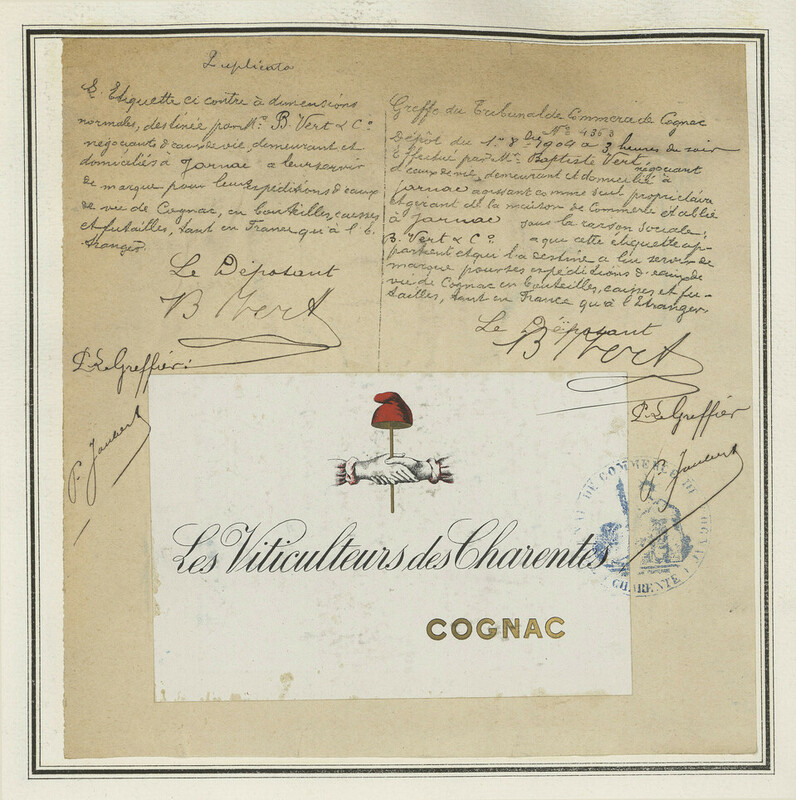 Duplicata
L'Etiquette ci contre à dimensions
normales, destinée par Mrs B. Vert & Cº
négociants d'eaux de vie, demeurant et
domiciliés à Jarnac a leur servir
de marque pour leurs expéditions d'eaux
de vie de Cognac, en bouteilles, caisses
et futailles, tant en France qu'à l'é-
tranger.
Le Déposant
B Vert
P. Le Greffier:
P. Jaubert
Greffe du Tribunal de Commerce de Cognac
Nº 1363
Dépôt du 1er 8bre 1904 à 3 heures du soir
Effectué par Mr Baptiste Vert, négociant
d'eaux de vie, demeurant et domicilié à
Jarnac agissant comme seul propriétaire
et gérant de la maison de Commerce établie
à Jarnac sous la raison sociale;
B. Vert & Cº. a que cette étiquette ap-
partient et qu'il la destine a lui servir de
marque pour ses expéditions d'eaux de
vie de Cognac en bouteilles, caisses et fu-
tailles, tant en France qu'à l'Etranger.
Le Déposant
B Vert
P. Le Greffier
P. Jaubert
Les Viticulteurs des Charentes
COGNAC
DE COMMERCE
CHARENTE